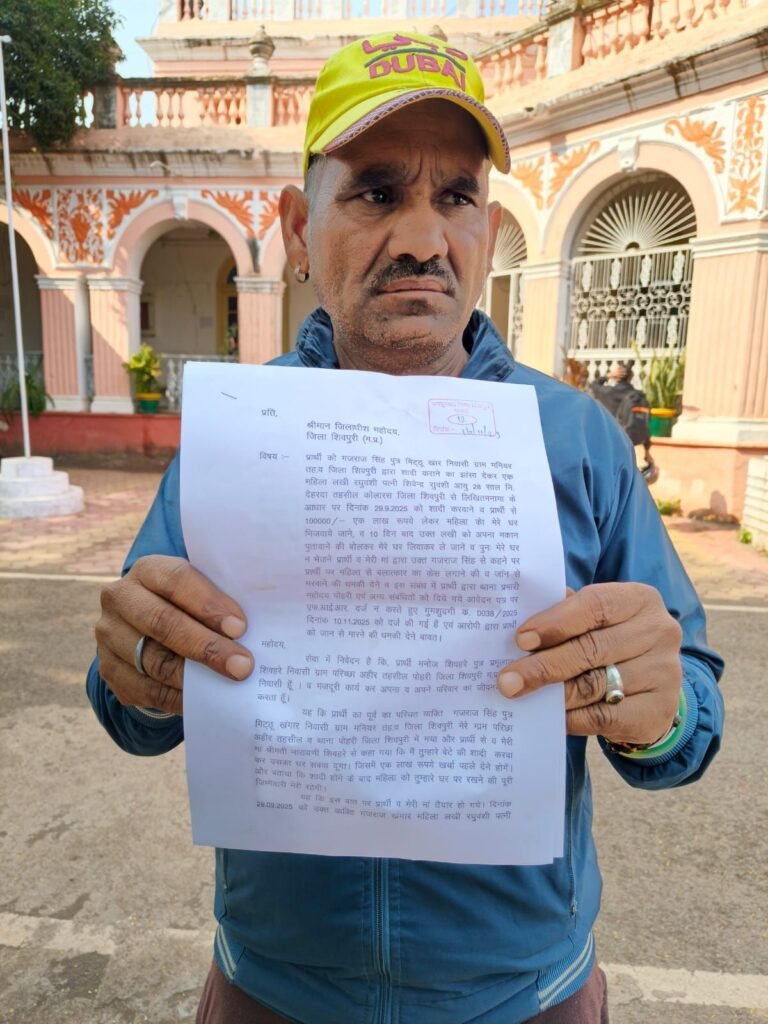 دبي
DUBAI
प्रति,
श्रीमान जिलाधीश महोदय,
जिला शिवपुरी (म.प्र.)
12
विषय :- प्रार्थी को गजराज सिंह पुत्र मिट्ठू खंगार निवासी ग्राम मनियर
तह.व जिला शिवपुरी द्वारा शादी कराने का झांसा देकर एक
महिला लखी रघुवंशी पत्नी शिवेन्द्र रघुवंशी आयु 28 साल नि.
देहरदा तहसील कोलारस जिला शिवपुरी से लिखितमनामा के
आधार पर दिनांक 29.9.2025 को शादी करवाने व प्रार्थी से
100000/- एक लाख रूपये लेकर महिला को मेरे घर
भिजवाये जाने, व 10 दिन बाद उक्त लखी को अपना मकान
पुतावाने की बोलकर मेरे घर लिवाकर ले जाने व पुनः मेरे घर
न भेजने प्रार्थी व मेरी मां द्वारा उक्त गजराज सिंह से कहने पर
प्रार्थी पर महिला से बलात्कार का केस लगाने की व जान से
मरवाने की धमकी देने व इस संबंध में प्रार्थी द्वारा थाना प्रभारी
महोदय पोहरी एवं अन्य संबंधितों को दिये गये आवेदन पत्र पर
एफ.आई.आर दर्ज न करते हुए गुमशुदगी क. 0038/2025
दिनांक 10.11.2025 को दर्ज की गई है एवं आरोपी द्वारा प्रार्थी
को जान से मारने की धमकी देने बावत।
महोदय,
सेवा में निवेदन है कि, प्रार्थी मनोज शिवहरे पुत्र
शिवहरे निवासी ग्राम परिच्छा अहीर तहसील पोहरी जिला शिवपुरी म.प्र.
निवासी हूँ। व मजदूरी कार्य कर अपना व अपने परिवार का
करता हूँ।
यह कि प्रार्थी का पूर्व का परिचित व्यक्ति गजराज सिंह पुत्र
मिट्ठू खंगार निवासी ग्राम मनियर तह.व जिला शिवपुरी मेरे ग्राम परिच्छा
अहीर तहसील व थाना पोहरी जिला शिवपुरी में गया और प्रार्थी से व मेरी
मां श्रीमती नारायणी शिवहरे से कहा गया कि मैं तुम्हारे बेटे की शादी करवा
कर उसका घर बसवा दूंगा। जिसमें एक लाख रूपये खर्चा पहले देने होगें।
और बताया कि शादी होने के बाद महिला को तुम्हारे घर पर रखने की पूरी
जिम्मेदारी मेरी रहेगी।
यह कि इस बात पर प्रार्थी व मेरी मां तैयार हो गये। दिनांक
29.09.2025 को उक्त व्यक्ति गजराज खंगार महिला लखी रघुवंशी पत्नी